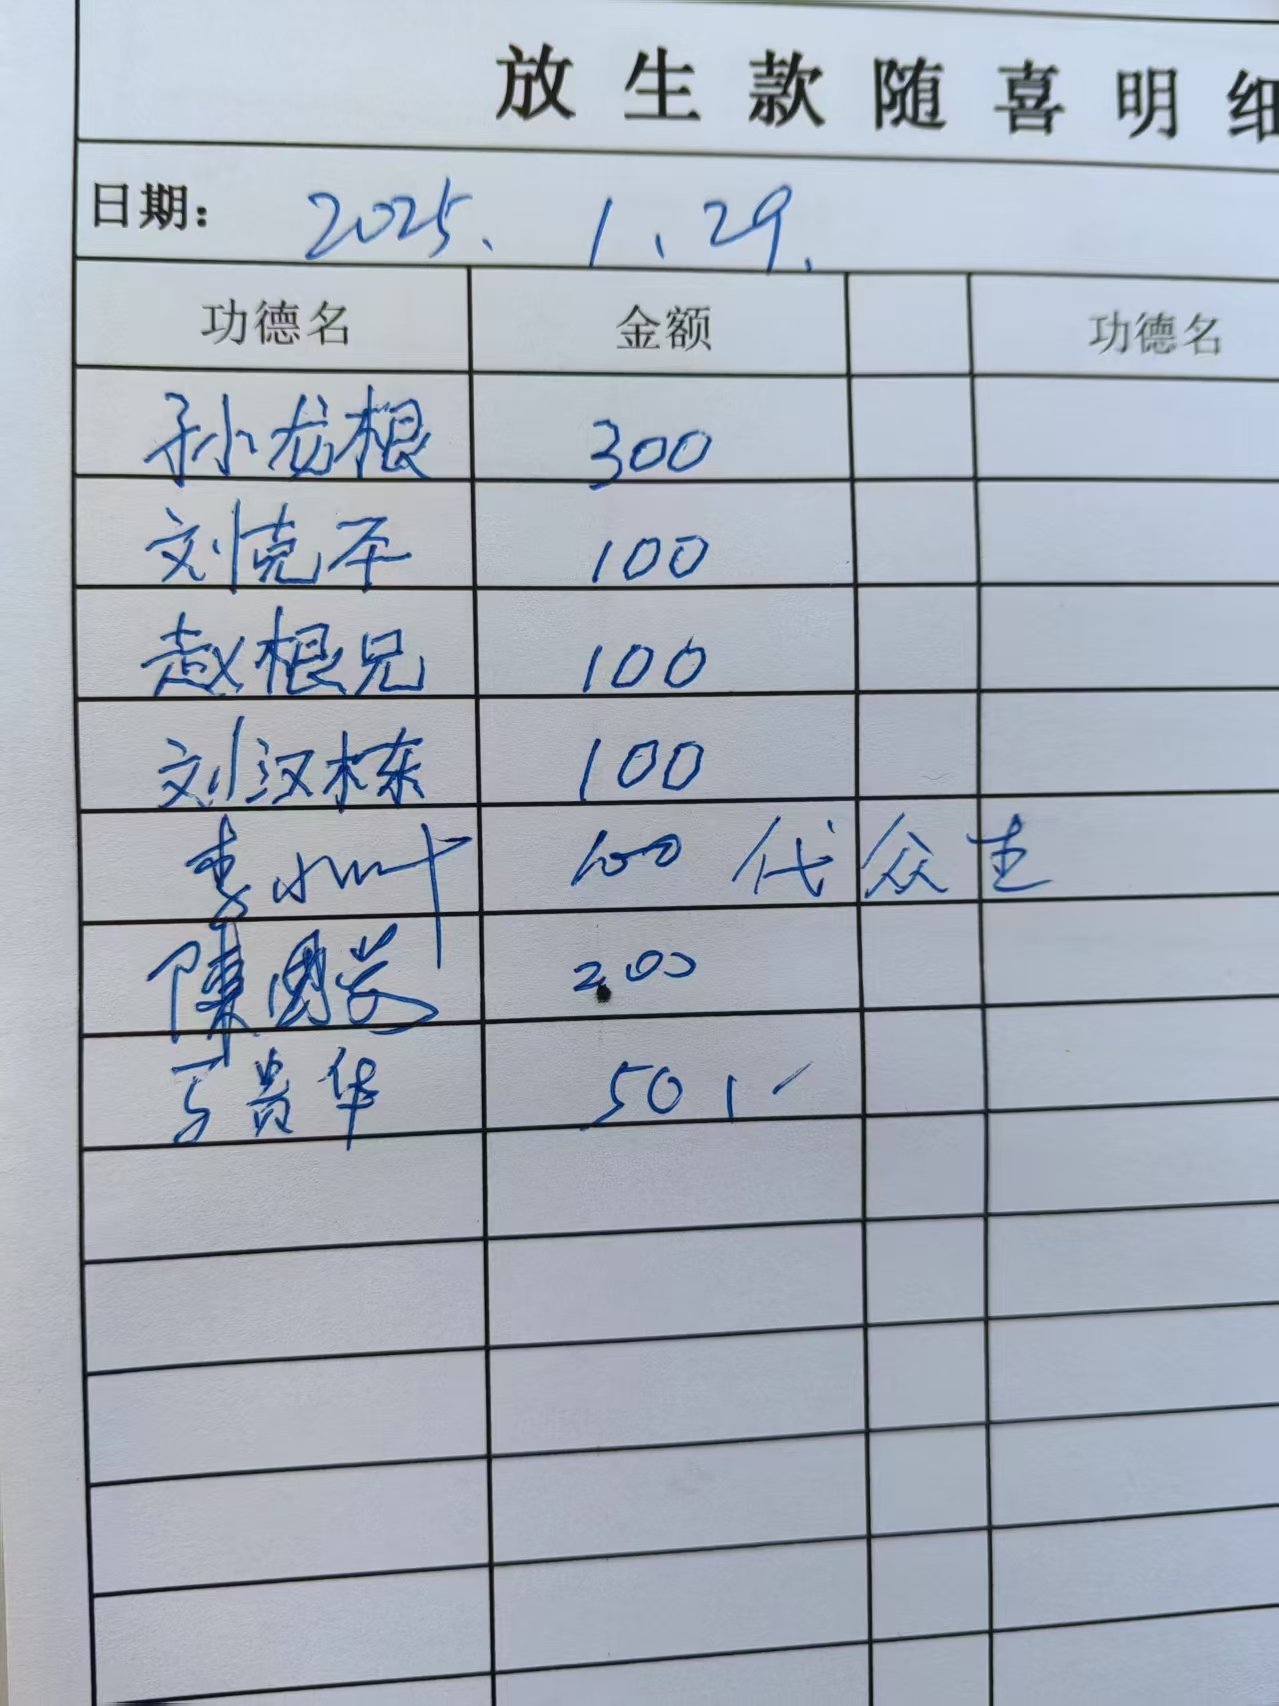 放生款随喜明细
日期: 2025、1、29.
功德名 金额 功德名
孙龙根 300
刘克不 100
赵根兄 100
刘汉栋 100
李小叶 100 代众生
陳国 200
贵华 50